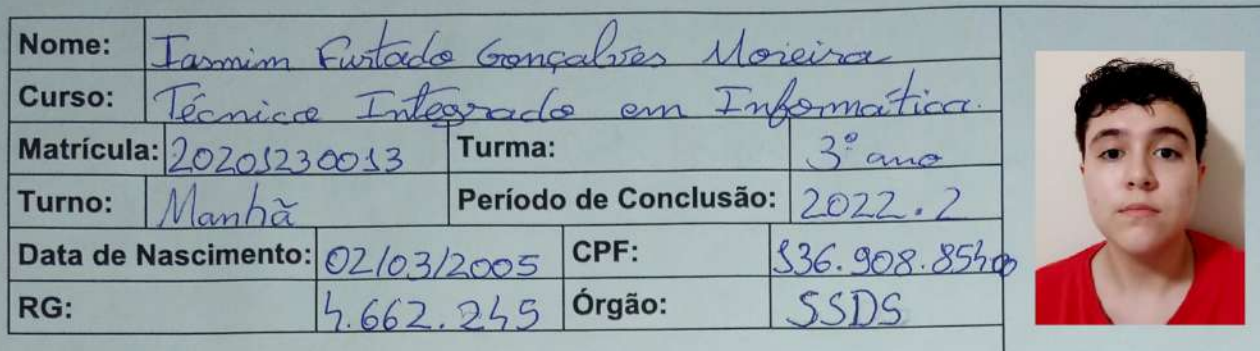 Nome: Iasmim Furtado Gonçalves Moreira
Curso: Técnico Integrado em Informática.
Matrícula: 20201230013 Turma: 3º ano
Turno: Manhã Período de Conclusão: 2022.2
Data de Nascimento: 02/03/2005 CPF: 136.908.854
RG: 4.662.245 Órgão: SSDS